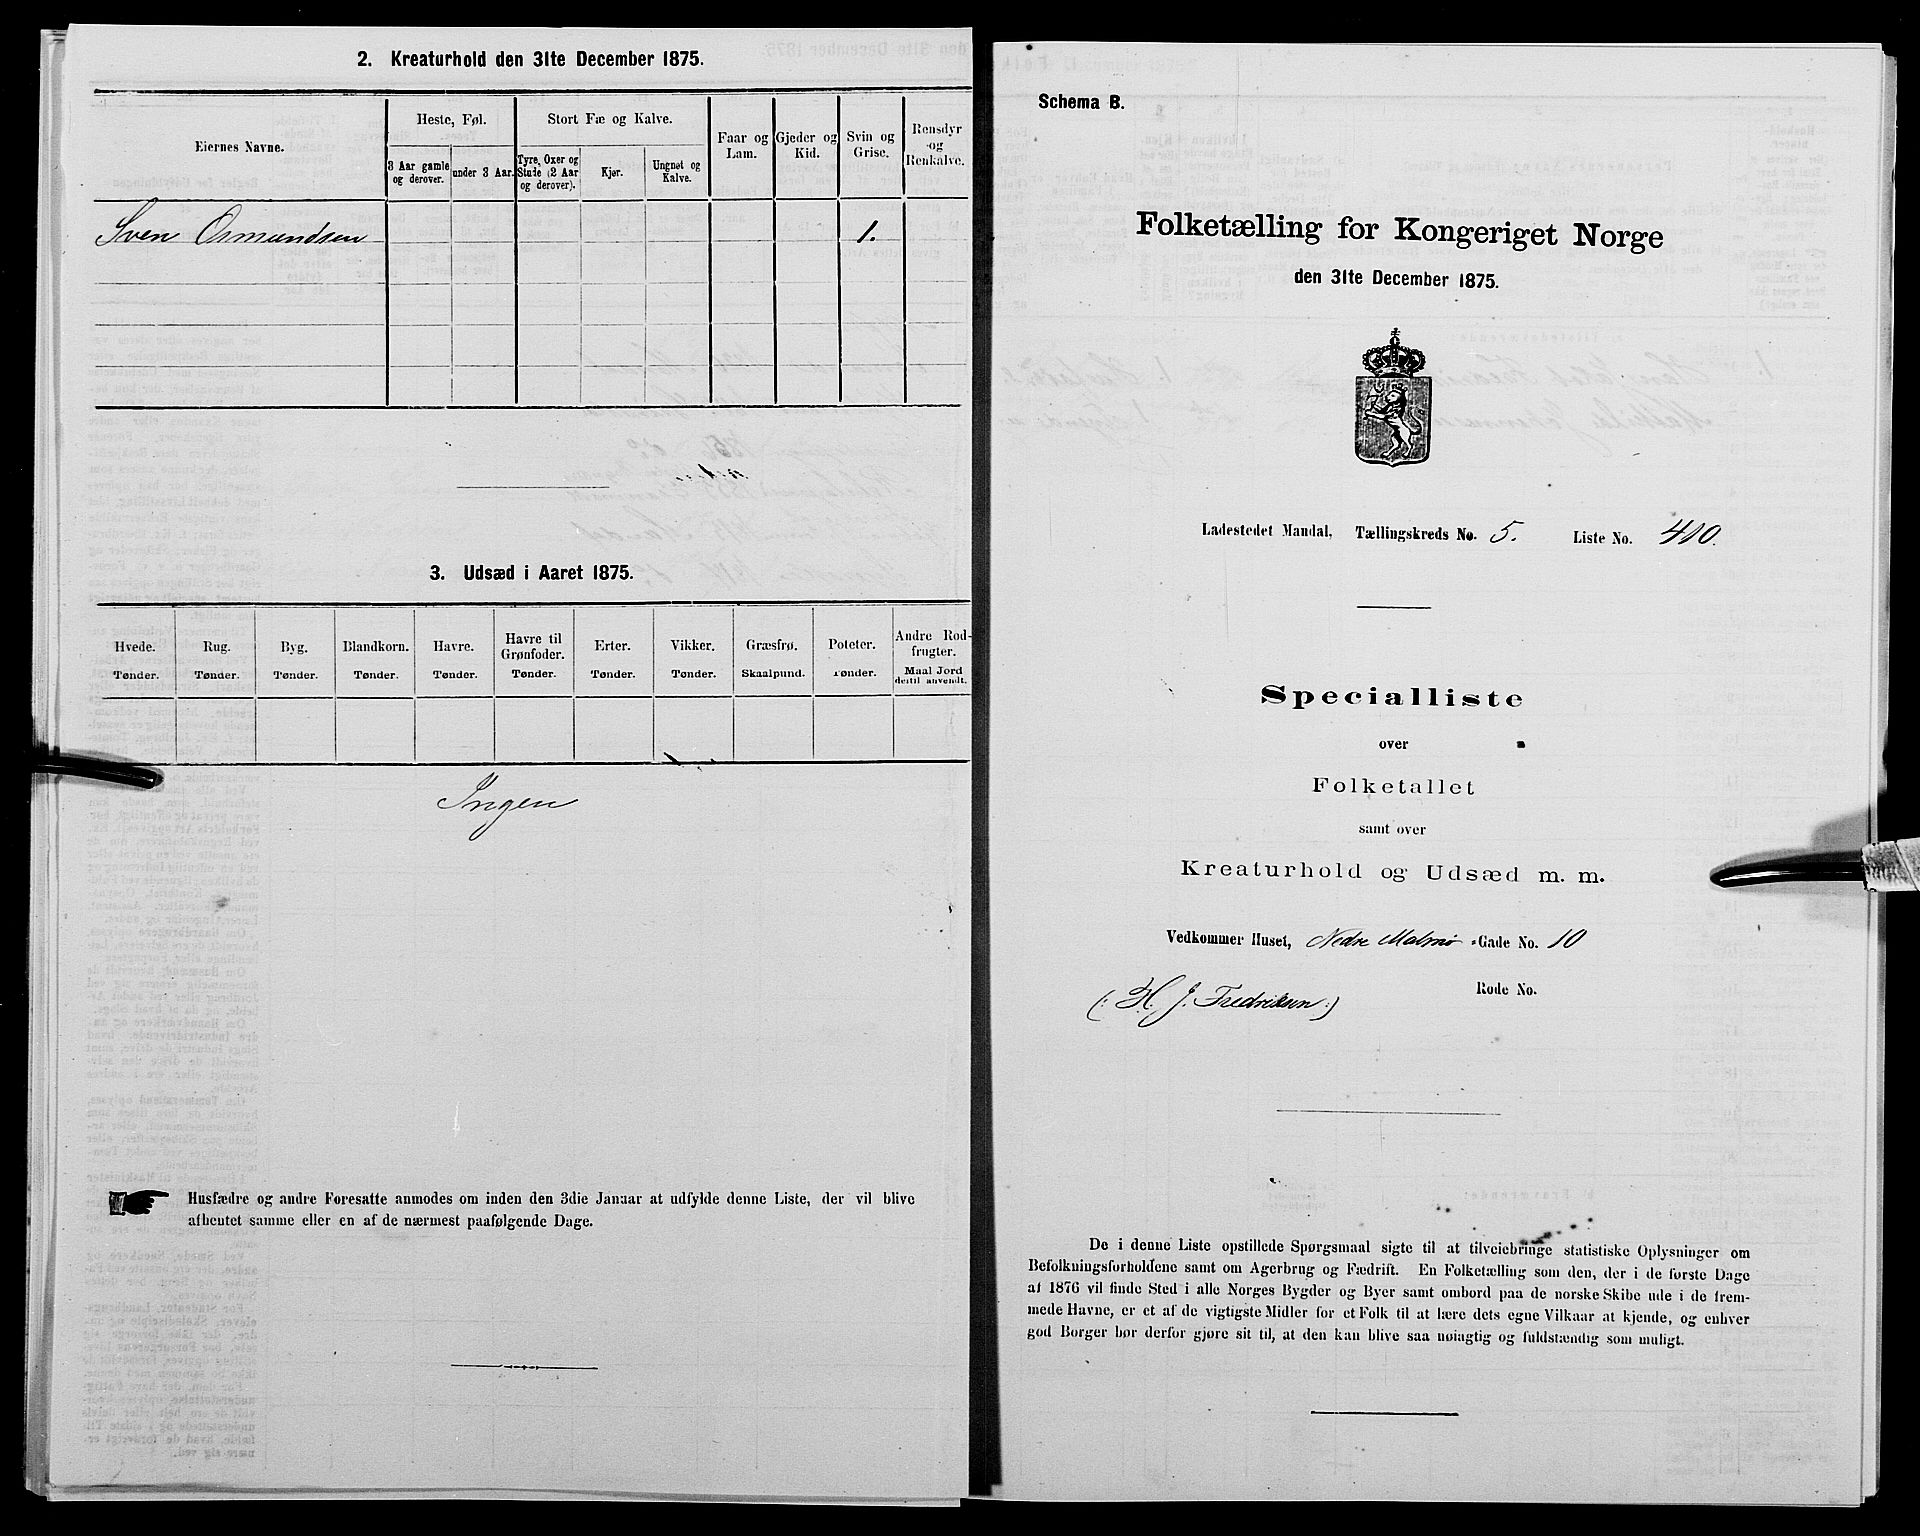 2. Kreaturhold den 31te December 1875.
Eiernes Navne.
Heste, Føl.
Stort Fæ og Kalve.
Faar og Lam.
Gjeder og Kid.
Svin og Grise.
Rensdyr og Renkalve.
3 Aar gamle og derover.
under 3 Aar.
Tyre, Oxer og Stude (2 Aar og derover).
Kjør.
Ungnøt og Kalve.
Sven Osmundsen 1.
3. Udsæd i Aaret 1875.
Hvede. Rug. Byg. Blandkorn. Havre. Havre til Grønfoder. Erter. Vikker. Græsfrø. Poteter. Andre Rodfrugter.
Tønder. Tønder. Tønder. Tønder. Tønder. Tønder. Tønder. Tønder. Skaalpund. Tønder. Maal Jord dertil anvendt.
Ingen
Husfædre og andre Foresatte anmodes om inden den 3die Januar at udfylde denne Liste, der vil blive
afhentet samme eller en af de nærmest paafølgende Dage.
Schema B.
Folketælling for Kongeriget Norge
den 31te December 1875.
Ladestedet Mandal, Tællingskreds No. 5. Liste No. 410.
Specialliste
over
Folketallet
samt over
Kreaturhold og Udsæd m. m.
Vedkommer Huset, Nedre Malmø -Gade No. 10
(: H. J. Fredriksen :) Rode No.
De i denne Liste opstillede Spørgsmaal sigte til at tilveiebringe statistiske Oplysninger om
Befolkningsforholdene samt om Agerbrug og Fædrift. En Folketælling som den, der i de første Dage
af 1876 vil finde Sted i alle Norges Bygder og Byer samt ombord paa de norske Skibe ude i de frem-
mede Havne, er et af de vigtigste Midler for et Folk til at lære dets egne Vilkaar at kjende, og enhver
god Borger bør derfor gjøre sit til, at den kan blive saa nøiagtig og fuldstændig som muligt.